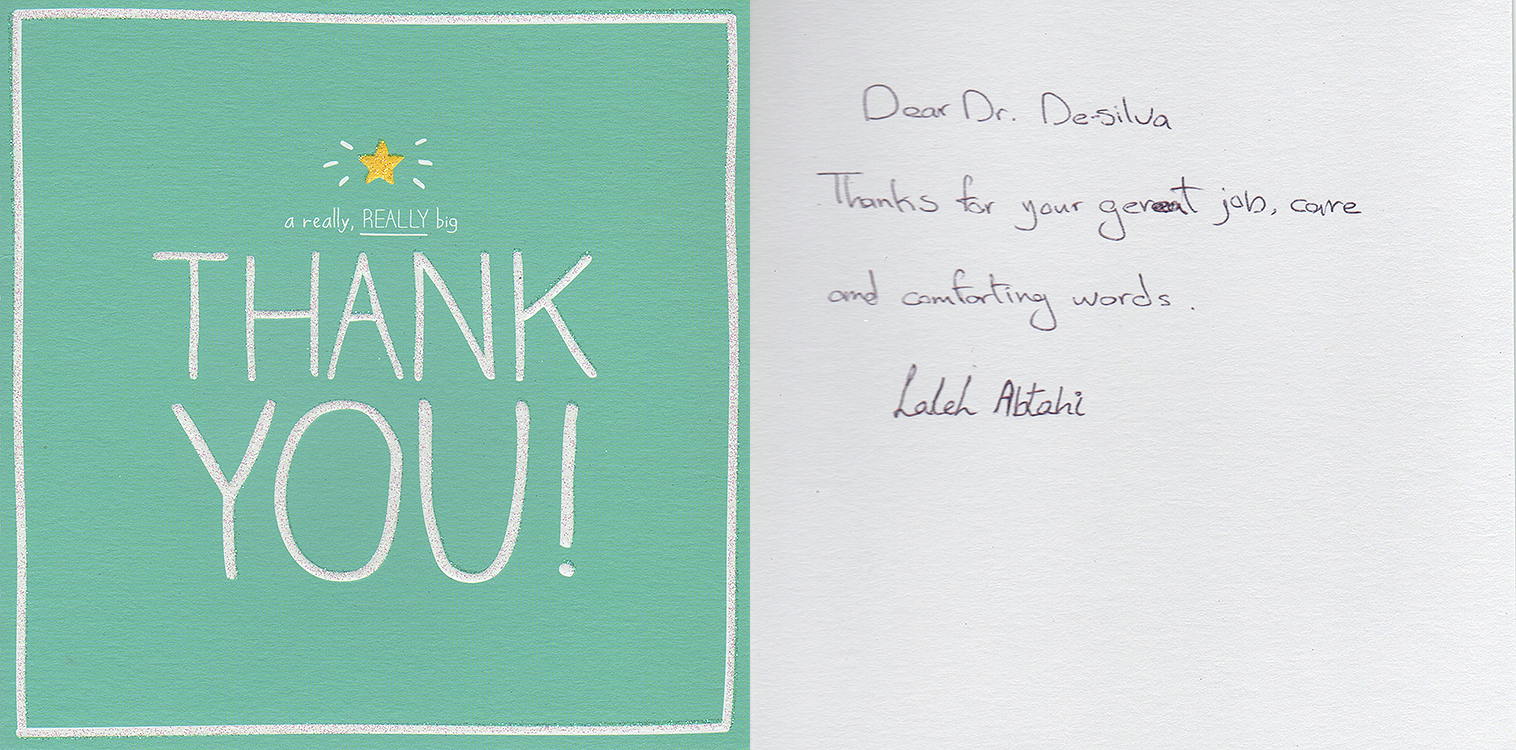 a really, REALLY big
THANK
YOU!
Dear Dr. De-silva
Thanks for your gereat job, care
and comforting words.
Laleh Abtahi